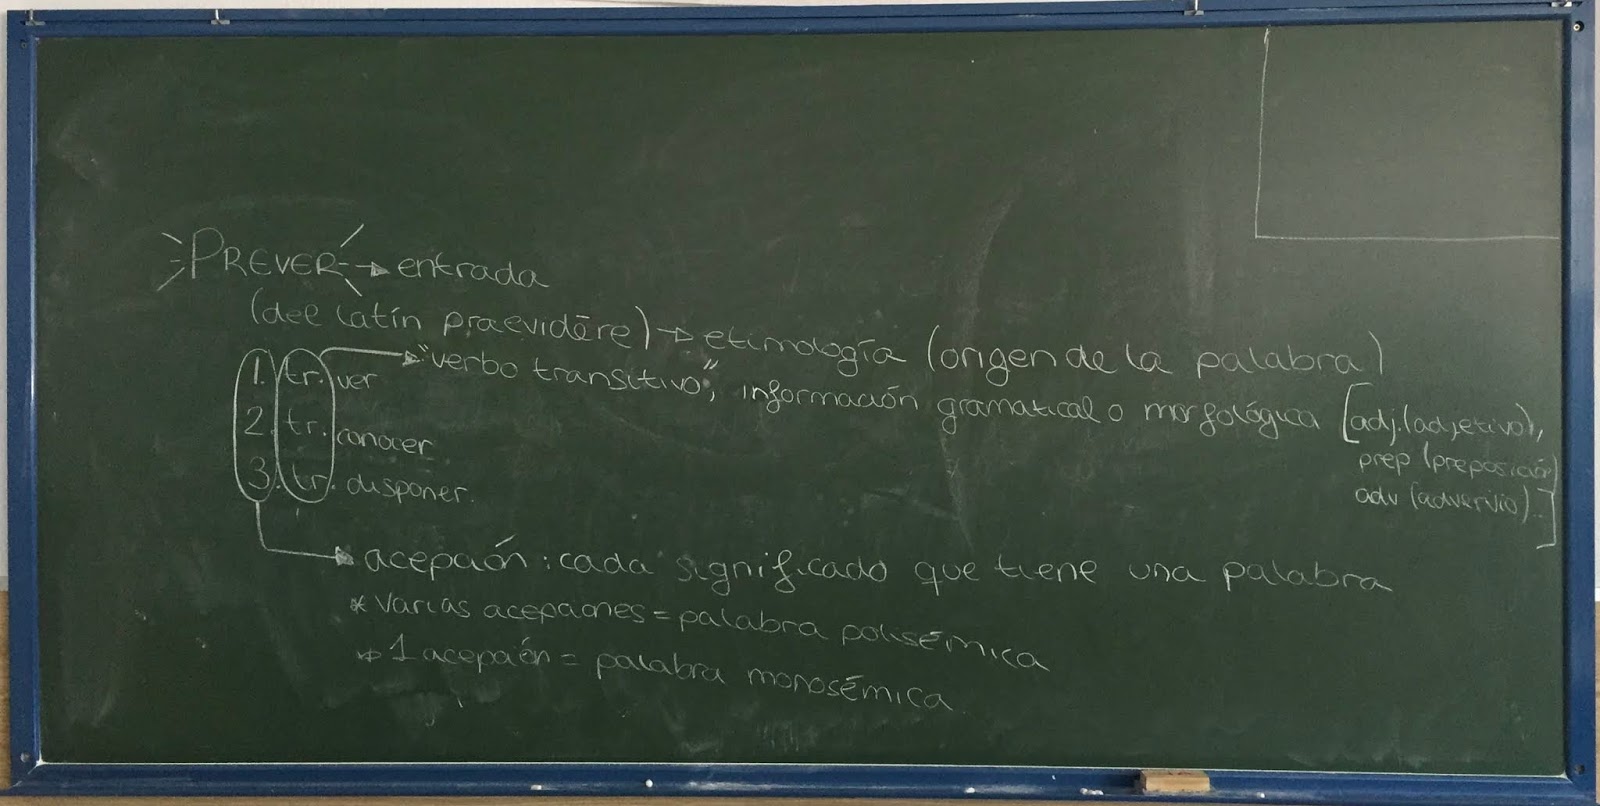 PREVER → entrada
(del latín praevidēre) → etimología (origen de la palabra)
1. tr. ver → "verbo transitivo", información gramatical o morfológica [adj. (adjetivo),
2. tr. conocer prep (preposición)
3. tr. disponer. adv (adverbio)..]
→ acepción: cada significado que tiene una palabra
* Varias acepciones = palabra polisémica
* 1 acepción = palabra monosémica